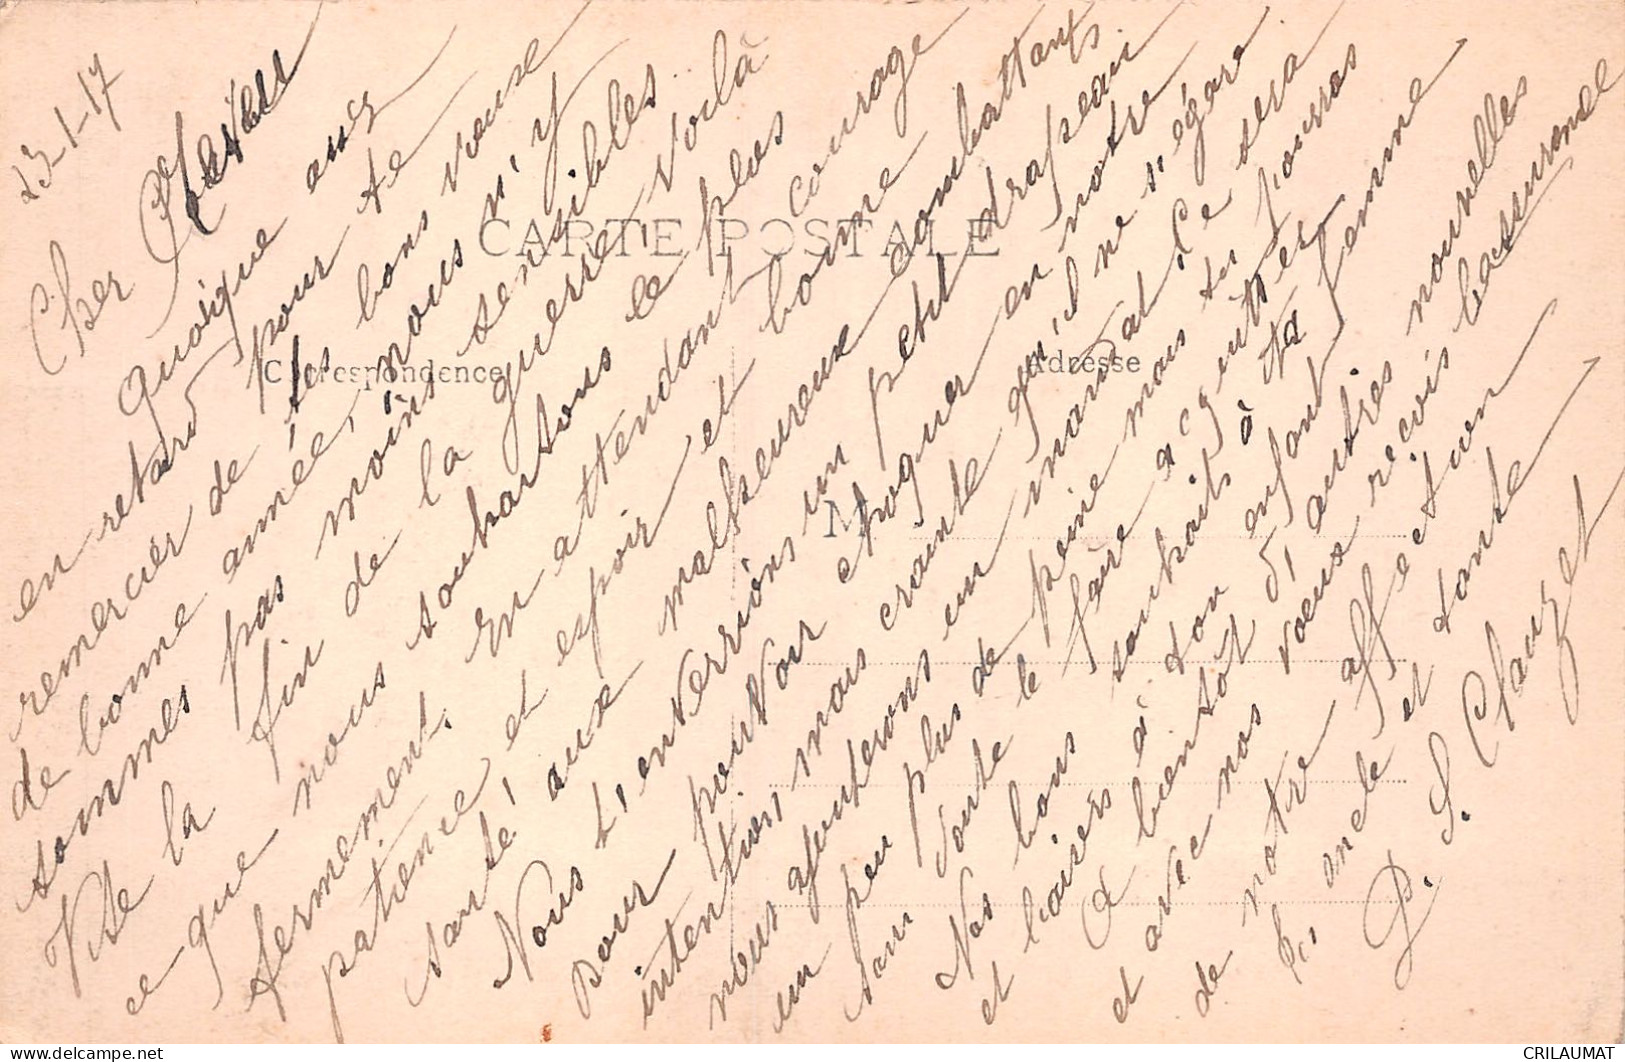 23-1-17
Cher
Quoique assez
en retard pour te
remercier de tes bons voeux
de bonne année, nous n'y
sommes pas moins sensibles
Vite la fin de la guerre, voilà
ce que nous souhaitons le plus
fermement. En attendant courage
patience et espoir et bonne
santé! aux malheureux combattants
Nous t'enverrions un petit drapeau
pour pouvoir évoquer en notre
intention, mais crainte qu'il ne s'égare
nous ajouterons un mandat. Ce sera
un peu plus de peine mais tu pourras
sans doute le faire acquitter
Nos bons souhaits à ta femme
et baisers à ton enfant
A bientôt d'autres nouvelles
et avec nos voeux reçois l'assurance
de notre affection
Ts. oncle et tante
P. S. Clauzet
CARTE POSTALE
Correspondence
Adresse
M
CRILAUMAT